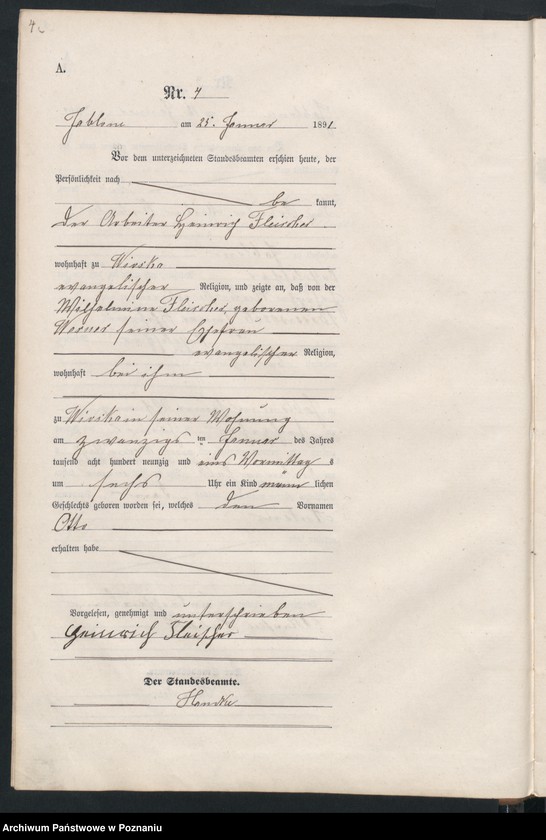 4.
A.
Nr. 4
Jablone am 25. Januar 1891
Vor dem unterzeichneten Standesbeamten erschien heute, der
Persönlichkeit nach
be kannt,
der Arbeiter Heinrich Fleischer
wohnhaft zu Wioska
evangelischer Religion, und zeigte an, daß von der
Wilhelmine Fleischer, geborenen
Werner seiner Ehefrau
evangelischer Religion,
wohnhaft bei ihm
zu Wioska in seiner Wohnung
am zwanzigs ten Januar des Jahres
tausend acht hundert neunzig und eins Vormittag s
um sechs Uhr ein Kind männ lichen
Geschlechts geboren worden sei, welches den Vornamen
Otto
erhalten habe
Vorgelesen, genehmigt und unterschrieben
Heinrich Fleischer
Der Standesbeamte.
Archiwum Państwowe w Poznaniu